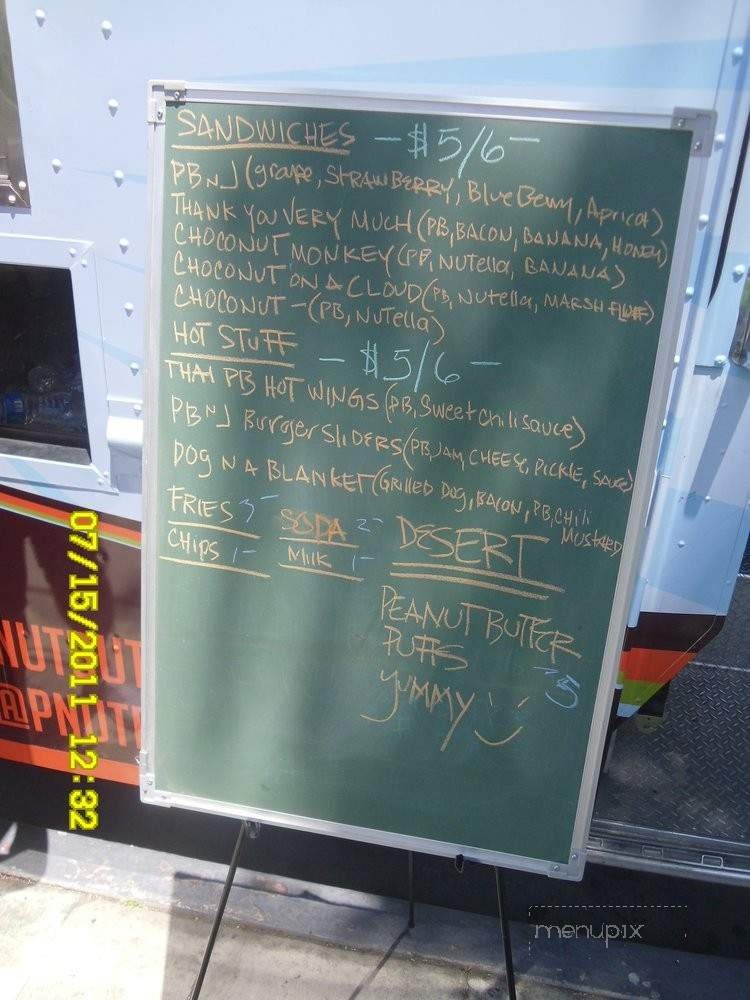 SANDWICHES - $5/6 -
PBNJ (grape, STRAWBERRY, BlueBerry, Apricot)
THANK YOU VERY MUCH (PB, BACON, BANANA, HONEY)
CHOCONUT MONKEY (PB, NUTella, BANANA)
CHOCONUT ON A CLOUD (PB, NUTella, MARSH FLUFF)
CHOCONUT - (PB, NUTella)
HOT STUFF - $5/6 -
THAI PB HOT WINGS (PB, Sweet chili sauce)
PBNJ BurgerSliders (PB, JAM, CHEESE, PICKLE, SAUCE)
DOG N A BLANKET (GRILLED DOG, BACON, PB, CHILI
MUSTARD
FRIES 3-
SODA 2-
CHIPS 1-
MILK 1-
DESERT
PEANUT BUTTER
PUFFS
- 5
YUMMY
NUTBUT
@PNUT
07/15/2011 12:32
menupix